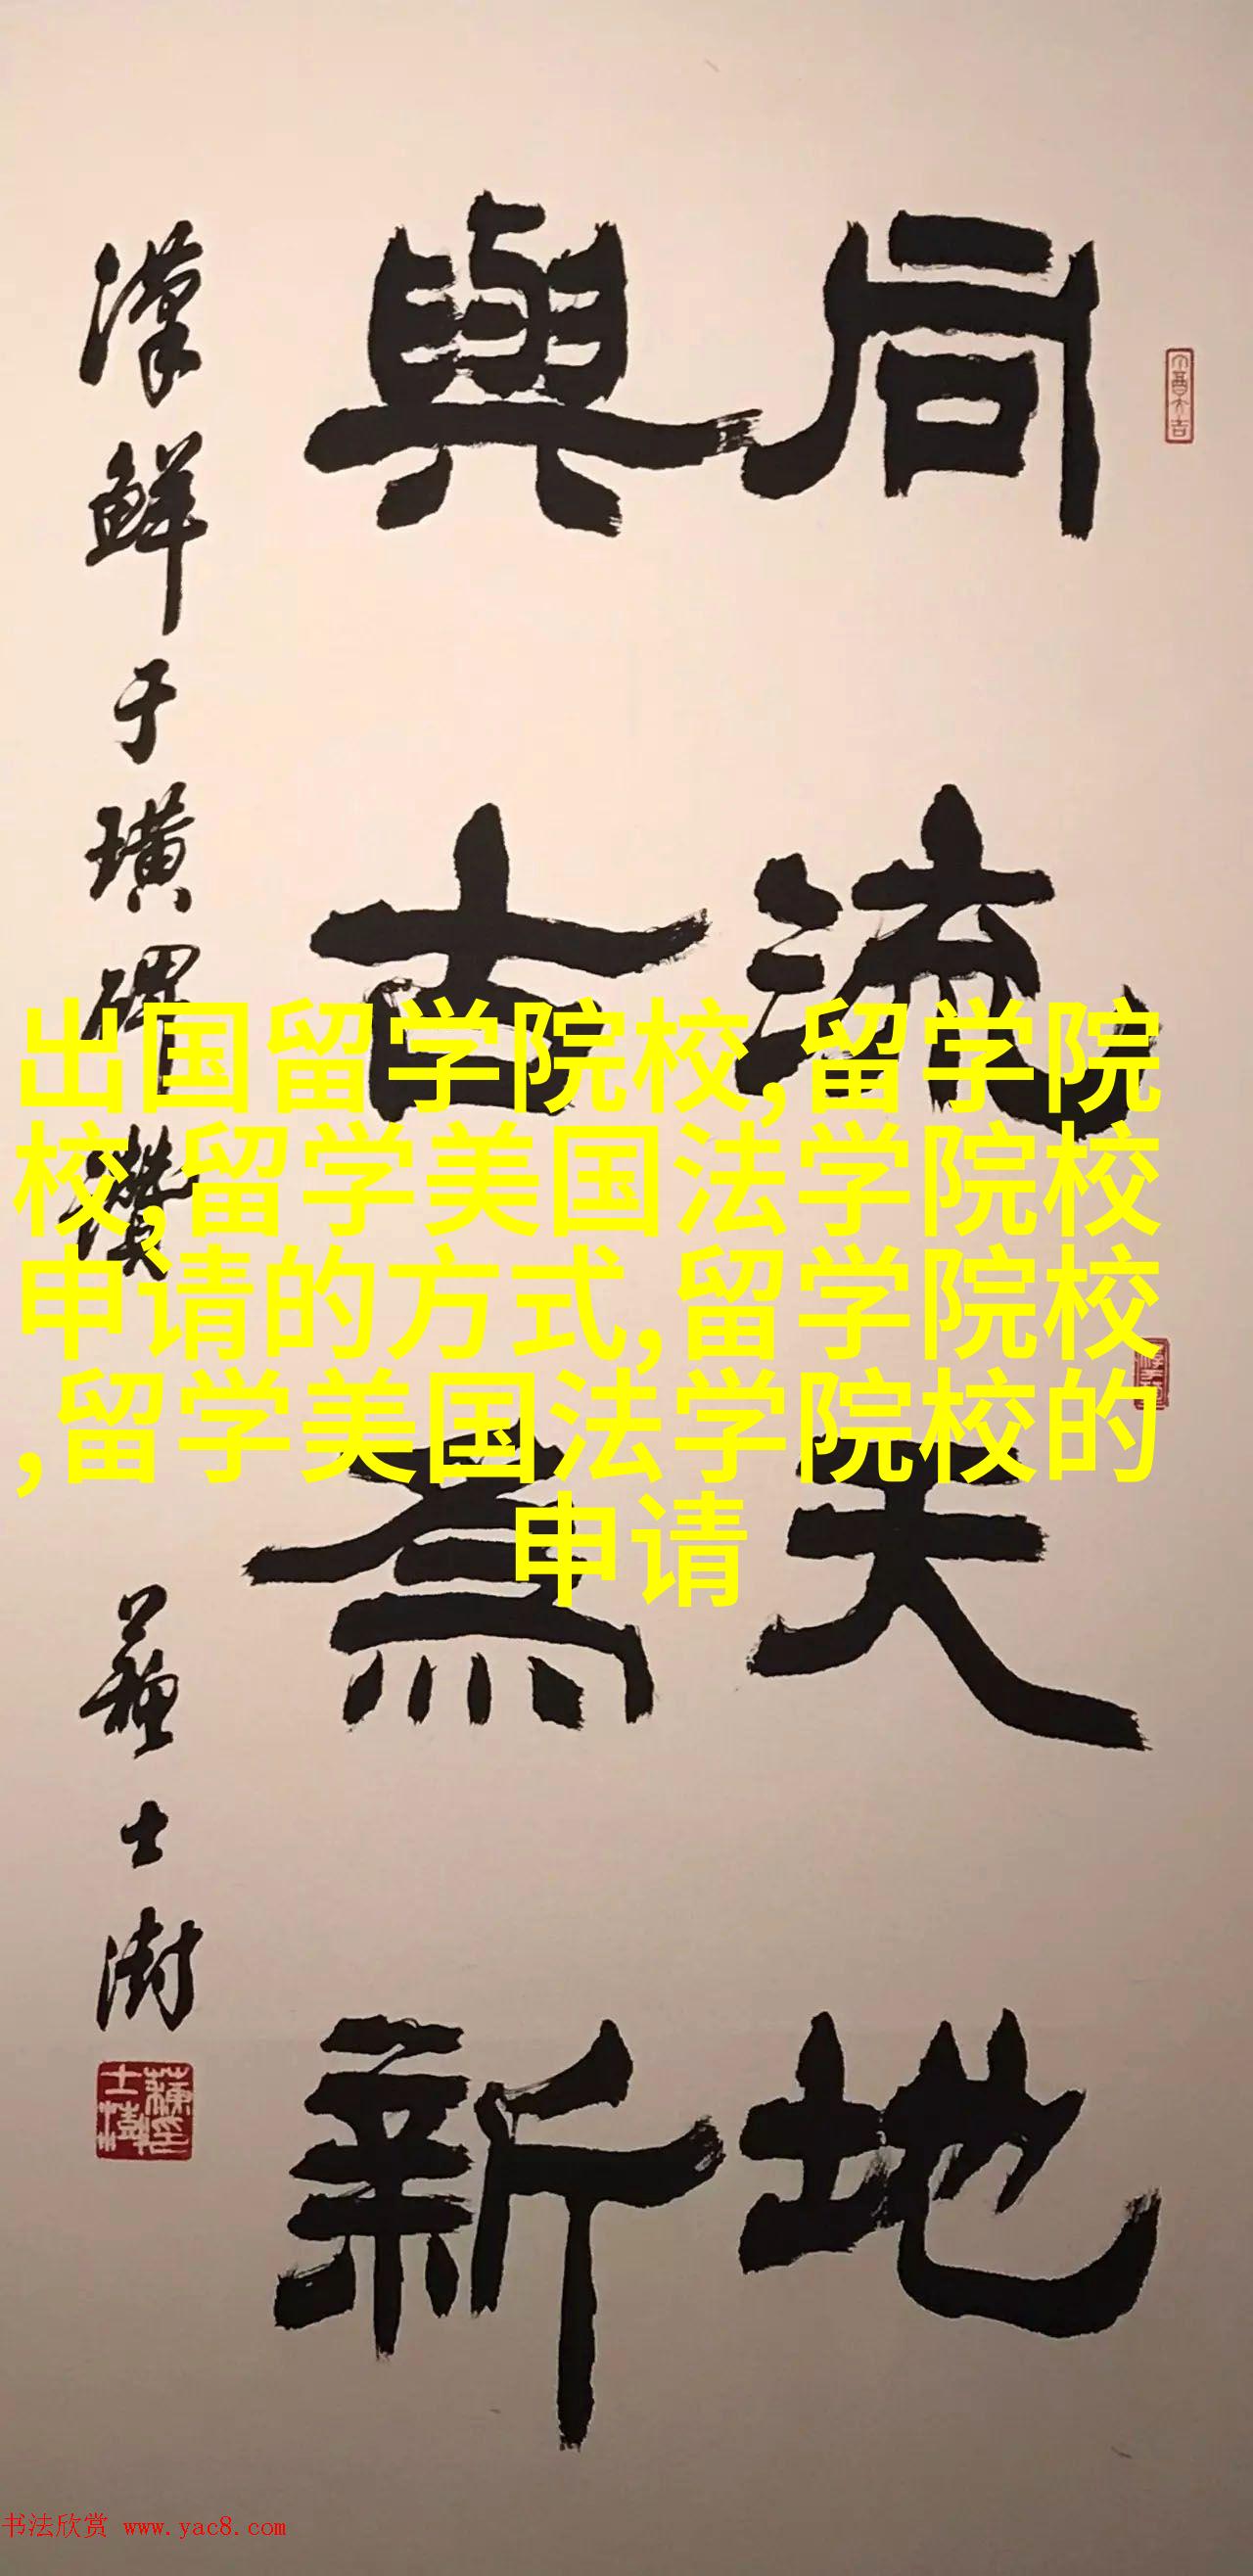 同流天地
與古為新
漢鮮于璜碑讚
蘇士澍
出国留学院校,留学院
校,留学美国法学院校
申请的方式,留学院校
,留学美国法学院校的
申请
书法欣赏 www.yac8.com